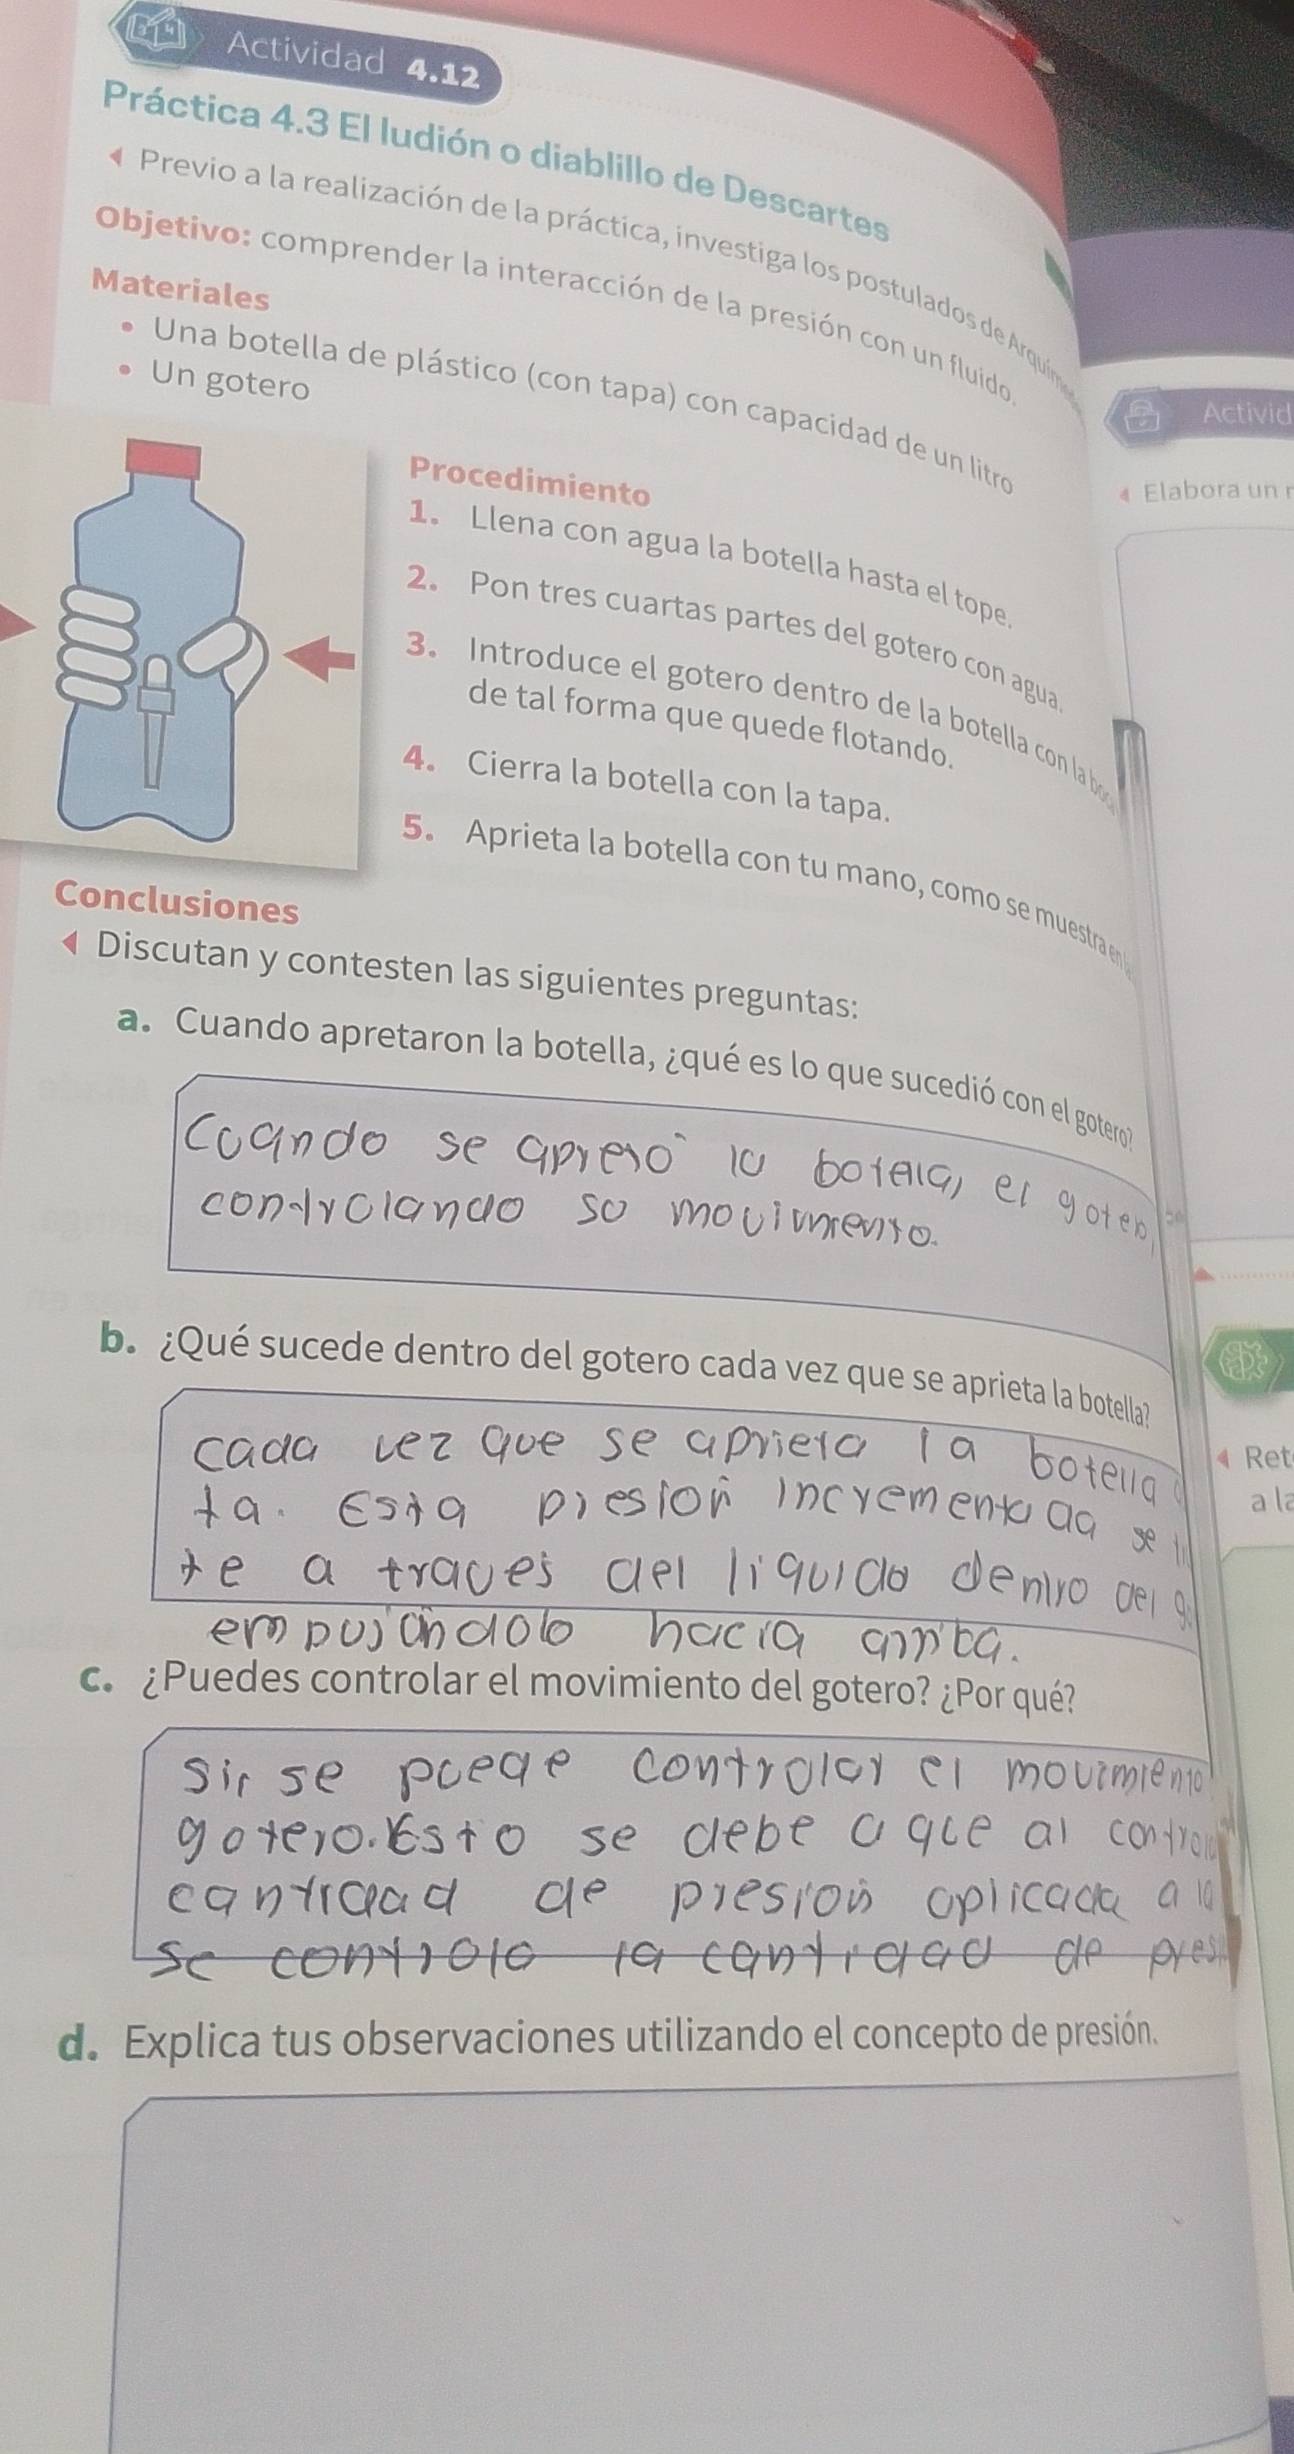 Actividad 4.12
Práctica 4.3 El ludión o diablillo de Descartes
Previo a la realización de la práctica, investiga los postulados de Arquím
Objetivo: comprender la interacción de la presión con un fluido.
Materiales
• Una botella de plástico (con tapa) con capacidad de un litro
• Un gotero
Procedimiento
1. Llena con agua la botella hasta el tope.
2. Pon tres cuartas partes del gotero con agua.
3. Introduce el gotero dentro de la botella con la boca
de tal forma que quede flotando.
4. Cierra la botella con la tapa.
5. Aprieta la botella con tu mano, como se muestra en la
Conclusiones
Discutan y contesten las siguientes preguntas:
a. Cuando apretaron la botella, ¿qué es lo que sucedió con el gotero?
Cuando se apretó la botella, el gotero,
controlando so movimiento.
b. ¿Qué sucede dentro del gotero cada vez que se aprieta la botella?
cada vez que se aprieta la botella
ta. Esta presion incrementada se
te a traves del liquido dentro del
empujandolo hacia arriba.
c. ¿Puedes controlar el movimiento del gotero? ¿Por qué?
Si, se puede controlar el movimiento
gotero. Esto se debe a que al
cantidad de presion aplicada a la
se controlo la cantidad de
d. Explica tus observaciones utilizando el concepto de presión.
Activid
Elabora un
Ret
a la